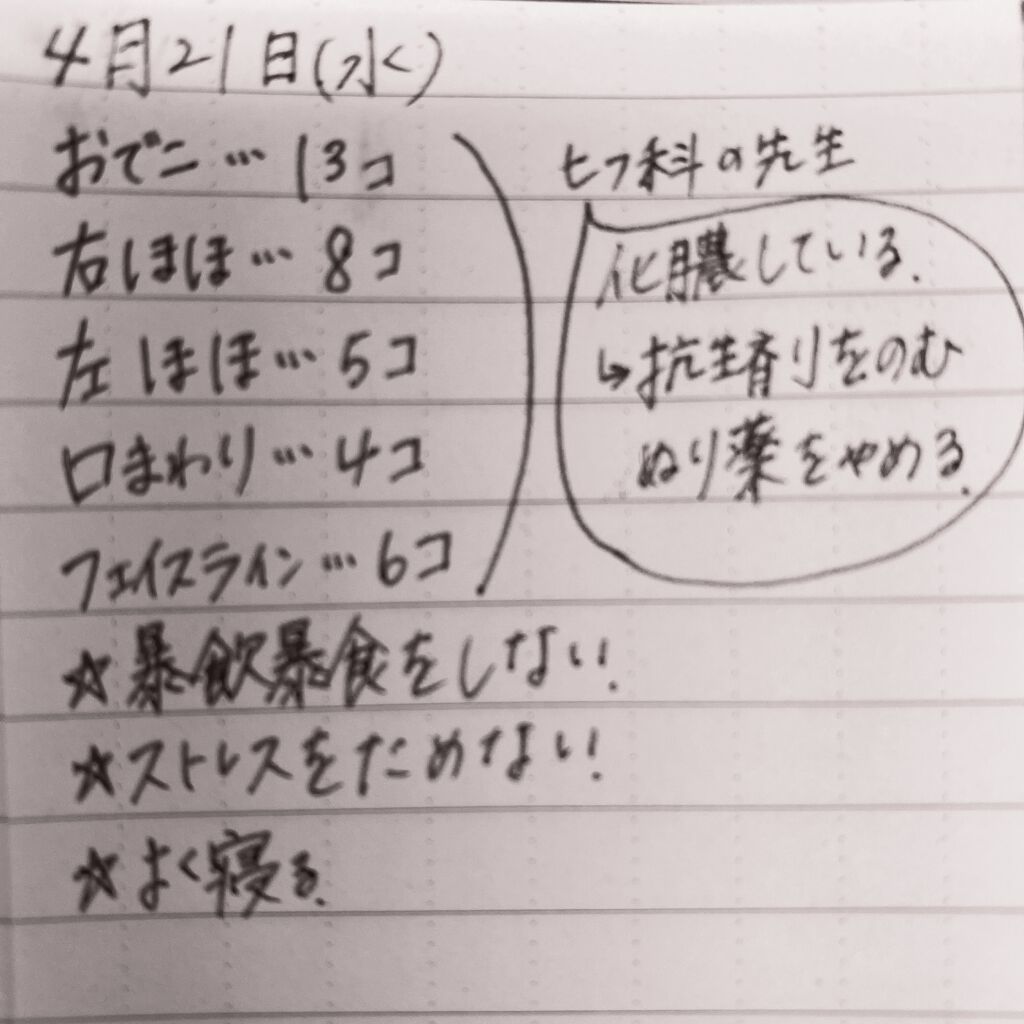 4月21日(水)
おでこ…13コ
右ほほ…8コ
左ほほ…5コ
口まわり…4コ
フェイスライン…6コ
ヒフ科の先生
化膿している.
↳抗生剤をのむ
ぬり薬をやめる.
☆暴飲暴食をしない!
☆ストレスをためない!
☆よく寝る.